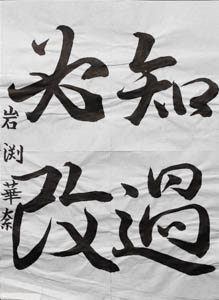 知過
必改
岩渕華奈